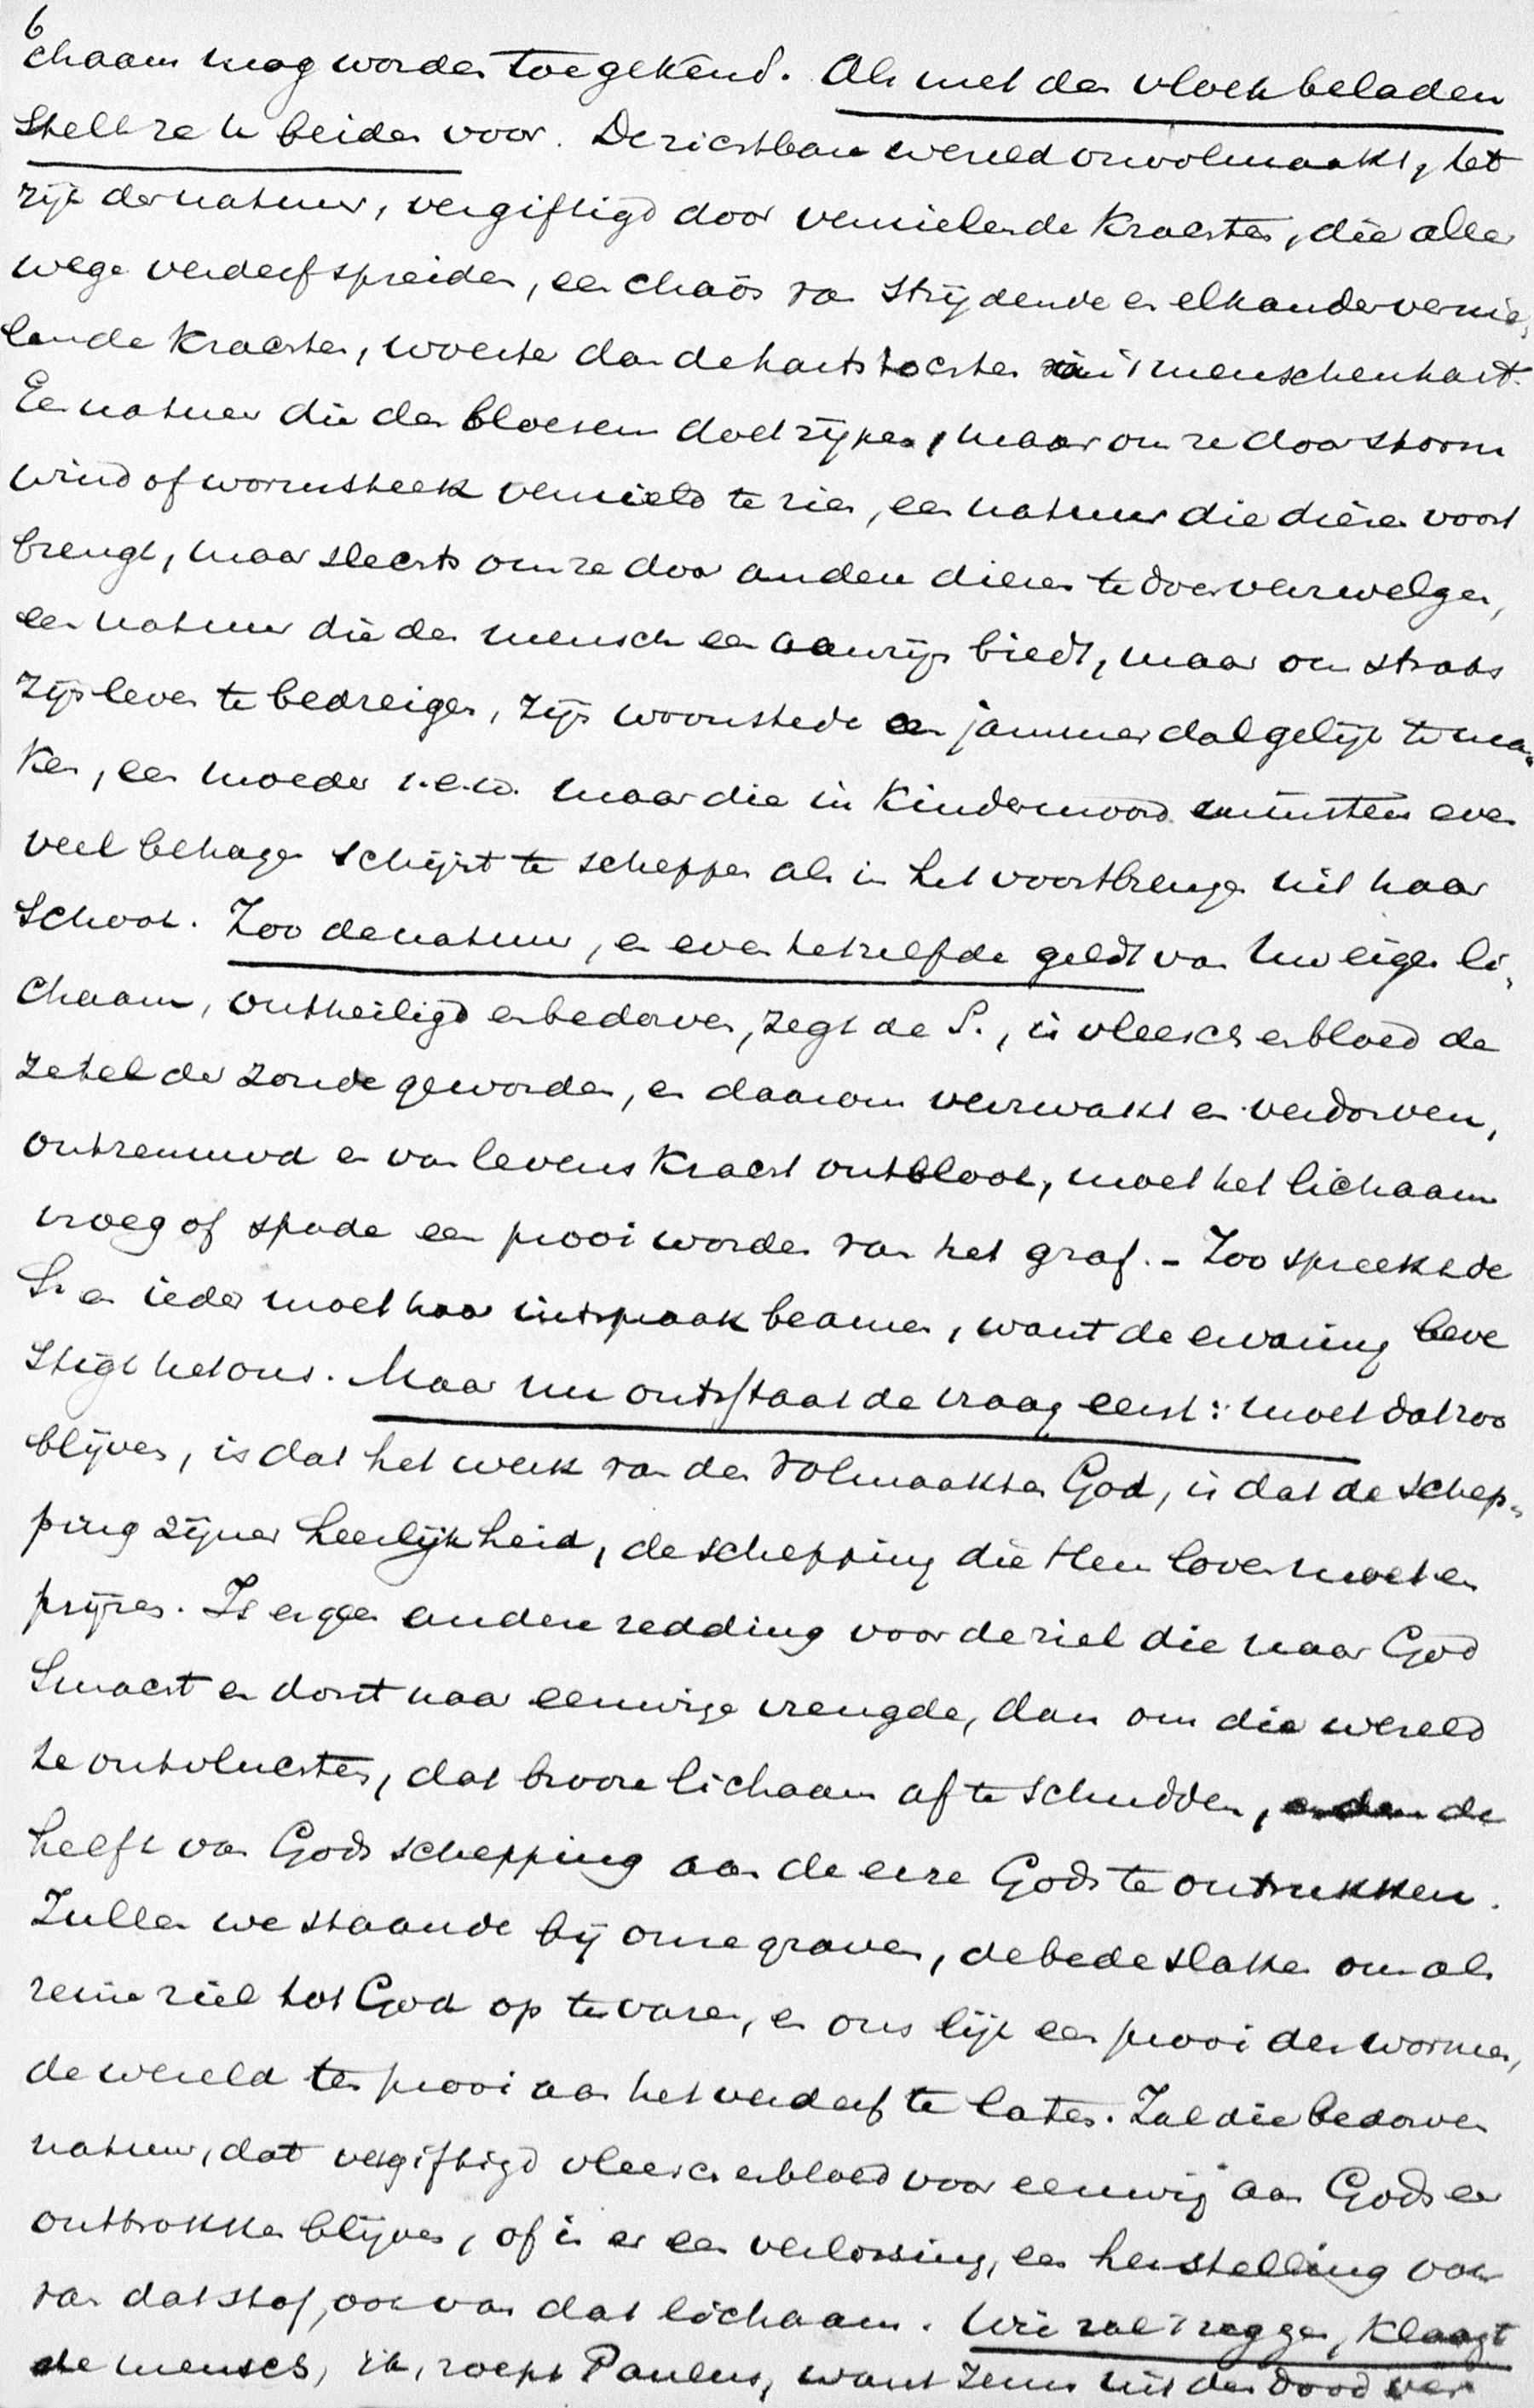 6
chaam mag worden toegekend. Als met den vloek beladen
stelt ze U beiden voor. De zichtbare wereld onvolmaakt, het
rijk der natuur, vergiftigd door vernielende krachten, die aller
wege verderf spreiden, een chaös van strijdende en elkander vernie„
lende krachten, woester dan de hartstochten in 't menschenhart.
Een natuur die den bloesem doet rijpen, maar om ze door storm
wind of wormsteek vernield te zien, een natuur die dieren voort
brengt, maar slechts om ze door andere dieren te doen verzwelgen,
een natuur die den mensch een aanzijn biedt, maar om straks
zijn leven te bedreigen, zijn woonstede een jammerdal gelijk te ma„
ken, een moeder i.e.w. maar die in kindermoord minstens even
veel behagen schijnt te scheppen als in het voortbrengen uit haar
schoot. Zoo de natuur, en even hetzelfde geldt van Uw eigen li„
chaam, ontheiligd en bedorven, zegt de S., is vleesch en bloed de
zetel der zonde geworden, en daarom verzwakt en verdorven,
ontzenuwd en van levenskracht ontbloot, moet het lichaam
vroeg of spade een prooi worden van het graf. - Zoo spreekt de
S. en ieder moet haar uitspraak beamen, want de ervaring beve
stigt het ons. Maar nu ontstaat de vraag eerst: moet dat zoo
blijven, is dat het werk van den Volmaakten God, is dat de schep„
ping zijner heerlijkheid, de schepping die Hem loven moet en
prijzen. Is er geen andere redding voor de ziel die naar God
smacht en dorst naar eeuwige vreugde, dan om die wereld
te ontvluchten, dat brooze lichaam af te schudden, de
helft van Gods schepping aan de eere Gods te ontrukken.
Zullen we staande bij onze graven, de bede slaken om als
reine ziel tot God op te varen, en ons lijk een prooi der wormen,
de wereld ten prooi aan het verderf te laten. Zal die bedorven
natuur, dat vergiftigd vleesch en bloed voor eeuwig aan Gods eer
onttrokken blijven, of is er een verlossing, een herstelling ook
van dat stof, ook van dat lichaam. Wie zal 't zeggen, klaagt
de mensch, ik, roept Paulus, want Jezus uit den dood ver